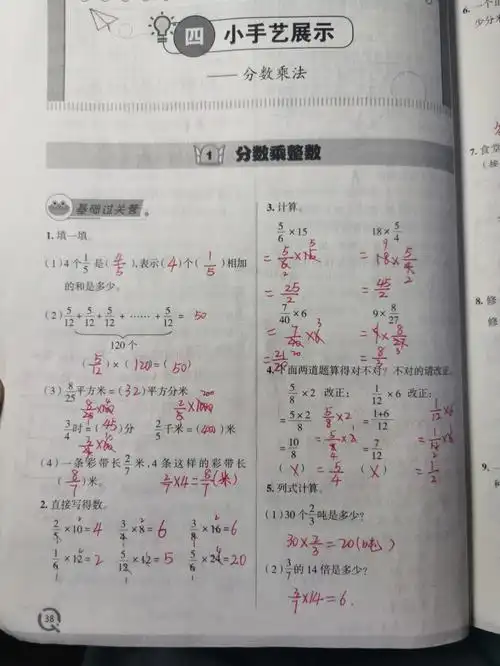 四 小手艺展示
——分数乘法
1 分数乘整数
基础过关营
1. 填一填。
(1) 4个1/5是(4/5),表示(4)个(1/5)相加
的和是多少。
(2) 5/12+5/12+5/12+……+5/12= 50
120个
(5/12)×(120)=(50)
(3) 8/25平方米=(32)平方分米
3/4时=(45)分 2/5千米=(400)米
(4) 一条彩带长2/7米,4条这样的彩带长
(8/7)米。 2/7×4=8/7(米)
2. 直接写得数。
2/5×10=4 3/4×8=6 3/8×16=6
1/6×12=2 5/12×12=5 5/6×24=20
38
3. 计算。
5/6×15 18×5/4
=5/6×15 =18×5/4
=25/2 =45/2
7/40×6 9×8/27
=7/40×6 =9×8/27
=21/20 =8/3
4. 下面两道题算得对不对?不对的请改正。
5/8×2 改正: 1/12×6 改正:
=5×2/8 5/8×2 =1+6/12 1/12×6
=10/8 =5/8×2 =7/12 =1/12×6
(×) =5/4 (×) =1/2
5. 列式计算。
(1) 30个2/3吨是多少?
30×2/3=20(吨)
(2) 3/7的14倍是多少?
3/7×14=6.
6. 一个正
少分米
7. 食堂
8. 修
修
9.